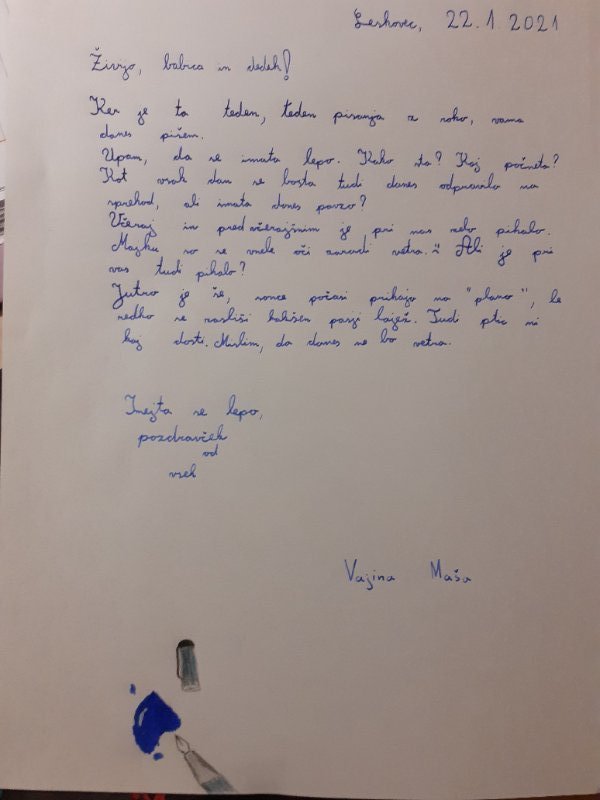 Leskovec, 22.1.2021
Živjo, babica in dedek!
Ker je ta teden, teden pisanja z roko, vama
danes pišem.
Upam, da se imata lepo. Kako sta? Kaj počneta?
Kot vsak dan se bosta tudi danes odpravila na
sprehod, ali imata danes pavzo?
Včeraj in predvčerajšnim je pri nas zelo pihalo.
so se vnele oči zaradi vetra. Ali je pri
vas tudi pihalo?
Jutro je še, sonce počasi prihaja na "plano", le
redko se zasliši kakšen pasji lajež. Tudi ptic ni
kaj dosti. Mislim, da danes ne bo vetra.
Imejta se lepo,
pozdravček
od
vseh
Vajina Maša